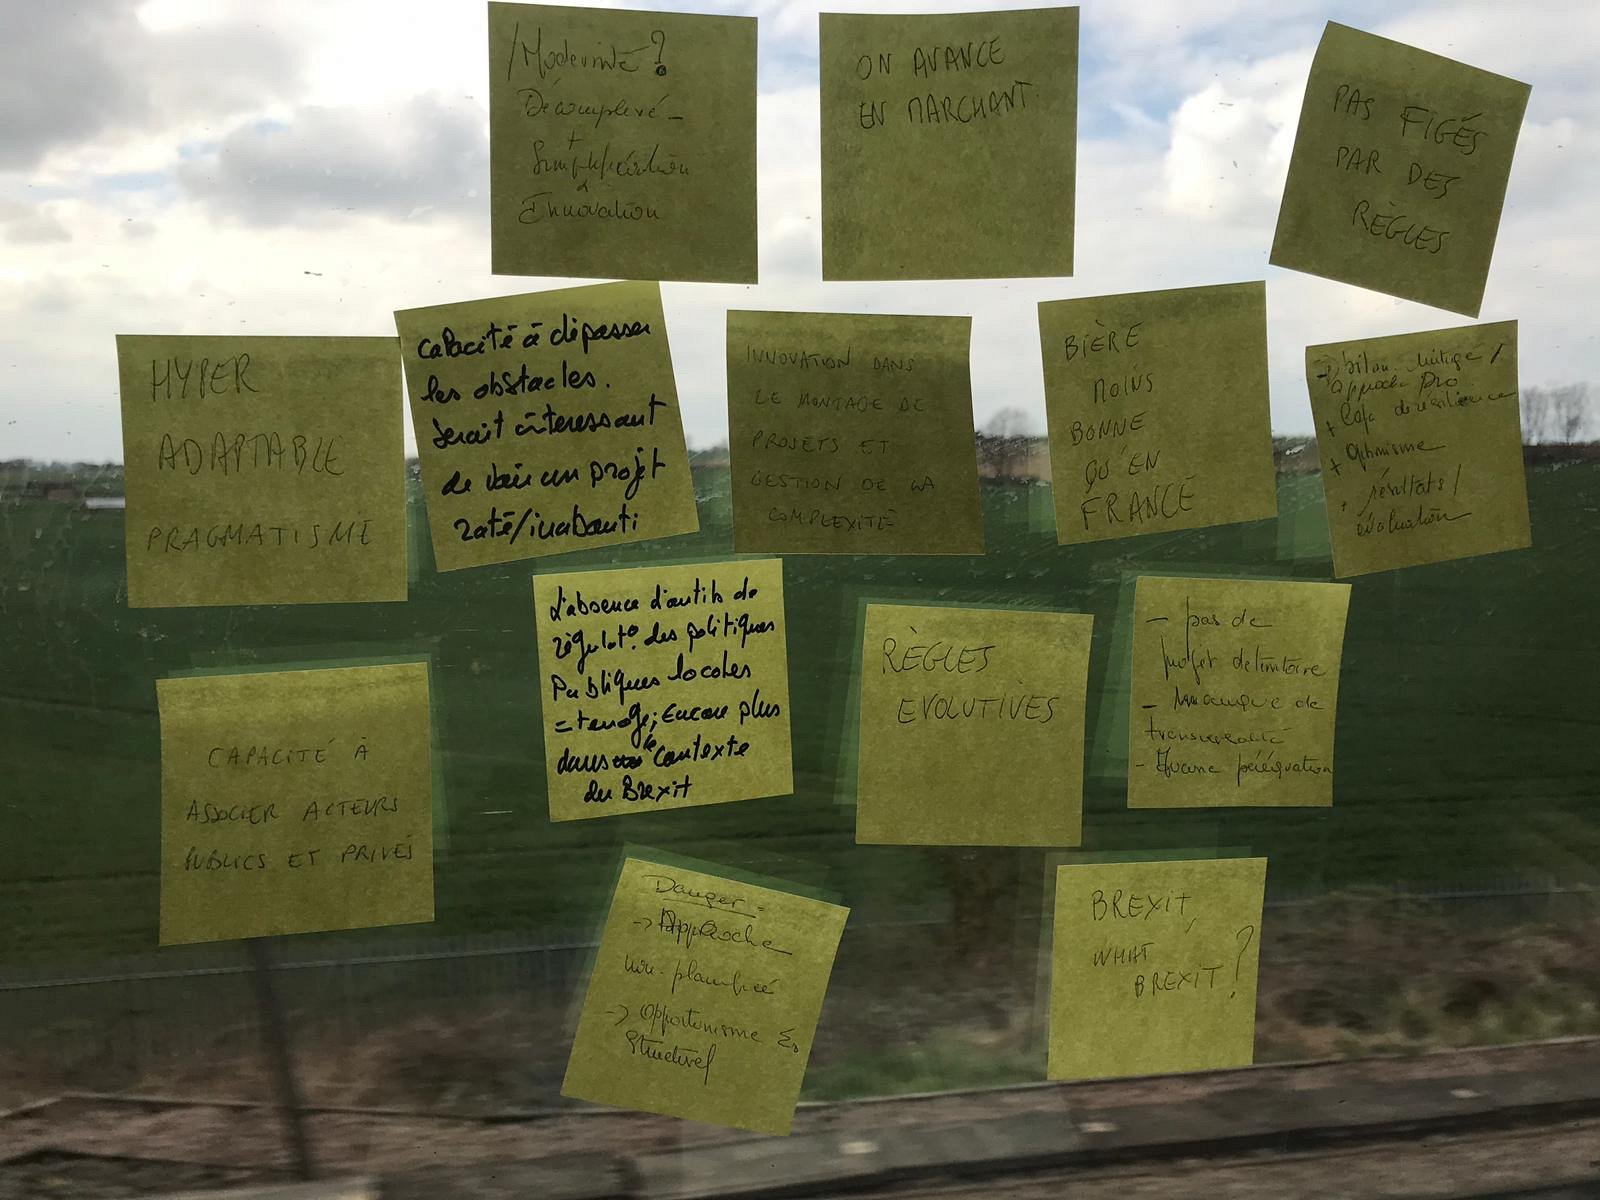 /Modernité ?
Décomplexé -
+
Simplification
&
Innovation
ON AVANCE
EN MARCHANT.
PAS FIGÉS
PAR DES
RÈGLES
HYPER
ADAPTABLE
PRAGMATISME
Capacité à dépasser
les obstacles.
Serait intéressant
de voir un projet
raté/inabouti
INNOVATION DANS
LE MONTAGE DE
PROJETS ET
GESTION DE LA
COMPLEXITÉ
BIÈRE
MOINS
BONNE
QU'EN
FRANCE
bilan mitigé /
approche pro
+ Capa de résilience
+ optimisme
résultats /
évaluation
CAPACITÉ À
ASSOCIER ACTEURS
PUBLICS ET PRIVÉS
L'absence d'outils de
régulat° des politiques
Publiques locales
; Encore plus
dans le contexte
du Brexit
RÈGLES
EVOLUTIVES
- pas de
projet de territoire
- manque de
transversalité
- Aucune péréquation
Danger =
-> Approche
non-planifiée
-> Opportunisme
Structurel
BREXIT,
WHAT
BREXIT ?